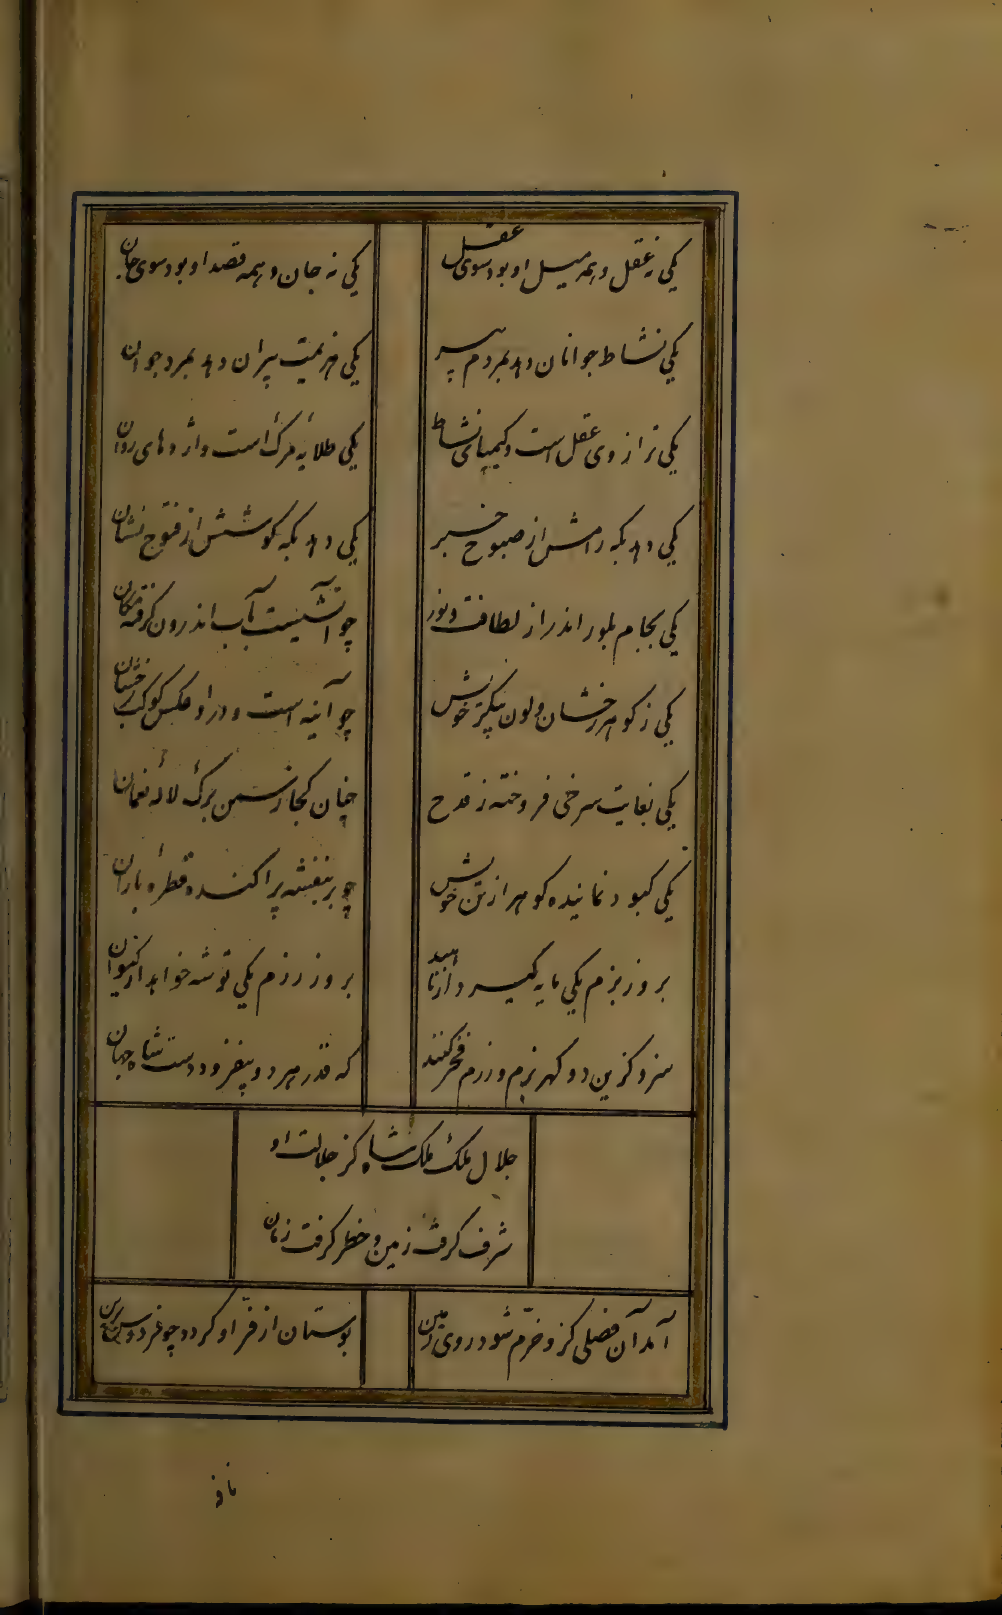 یکی نه عقل و همه میل او بود سوی عقل
یکی نه جان و همه قصد او بود سوی جان
یکی نشاط جوانان دهد بمردم پیر
یکی هزیمت پیران دهد بمرد جوان
یکی ترازوی عقل است و کیمیای نشاط
یکی طلایه مرک است و اژدهای روان
یکی دهد بکه رامش از صبوح خبر
یکی دهد بکه کوشش از فتوح نشان
یکی بجام بلور اندر از لطافت و نور
چو آتشیست بآب اندرون کرفته مکان
یکی ز کوهر رخشان و لون پیکر خویش
چو آینه است و درو عکس کوکب رخشان
یکی بغایت سرخی فروخته ز قدح
چنان کجا ز سمن برک لاله نعمان
یکی کبود نماینده کوهر از تن خویش
چو بر بنفشه پراکنده قطره باران
بروز بزم یکی مایه کیرد از ناهید
بروز رزم یکی توشه خواهد از کیوان
سزد کزین دو کهر بزم و رزم فخر کنند
که قدر هر دو بیفزود دست شاه جهان
جلال ملک ملکشاه کز جلالت او
شرف کرفت زمین و خطر کرفت زمان
آمد آن فصلی کزو خرم شود روی زمین
بوستان از فر او کردد چو فردوس برین
ناف